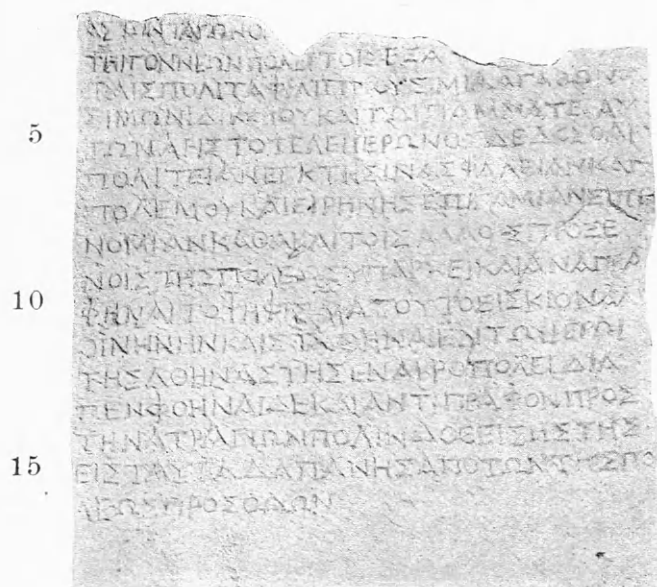 ΤΗΙΓΟΝΝΕΩΝΠΟΛΕΙΤΟΙΣΕΞΑ
5 ΤΩΝΑΡΙΣΤΟΤΕΛΕΙΙΕΡΩΝΟΣ ΔΕΔΟΣΘΑΙ
ΠΟΛΙΤΕΙΑΝΕΓΚΤΗΣΙΝΑΣΦΑΛΕΙΑΝΚΑΙ
ΠΟΛΕΜΟΥΚΑΙΕΙΡΗΝΗΣΕΠΙΓΑΜΙΑΝΕΠΙ
ΝΟΜΙΑΝΚΑΘΑΚΑΙΤΟΙΣΑΛΛΟΙΣΠΡΟΞΕ
ΝΟΙΣΤΗΣΠΟΛΕΩΣΥΠΑΡΧΕΙΚΑΙΑΝΑΓΡΑ
10 ΦΗΝΑΙΤΟΨΗΦΙΣΜΑΤΟΥΤΟΕΙΣΚΙΟΝΑΛΙ
ΘΙΝΗΝΗΝΚΑΙΣΤΑΘΗΝΑΙΕΝΤΩΙΙΕΡΩΙ
ΤΗΣΑΘΗΝΑΣΤΗΣΕΝΑΚΡΟΠΟΛΕΙΔΙΑ
ΠΕΝΦΘΗΝΑΙΔΕΚΑΙΑΝΤΙΓΡΑΦΟΝΠΡΟΣ
ΤΗΝΑΤΡΑΓΙΩΝΠΟΛΙΝΔΟΘΕΙΣΗΣΤΗΣ
15 ΕΙΣΤΑΥΤΑΔΑΠΑΝΗΣΑΠΟΤΩΝΤΗΣΠΟ
ΛΕΩΣΠΡΟΣΟΔΩΝ